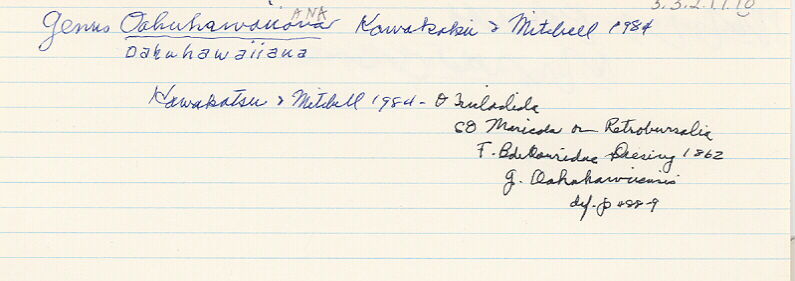 3.3.2.1.1.10
ANA
Genus Oahuhawaiiana Kawakatsu & Mitchell 1984
Oahuhawaiiana
Kawakatsu & Mitchell 1984 - O Tricladida
SO Maricola or Retrobursalia
F. Bdellouridae Diesing 1862
g. Oahuhawiiensis
def. p 488-9